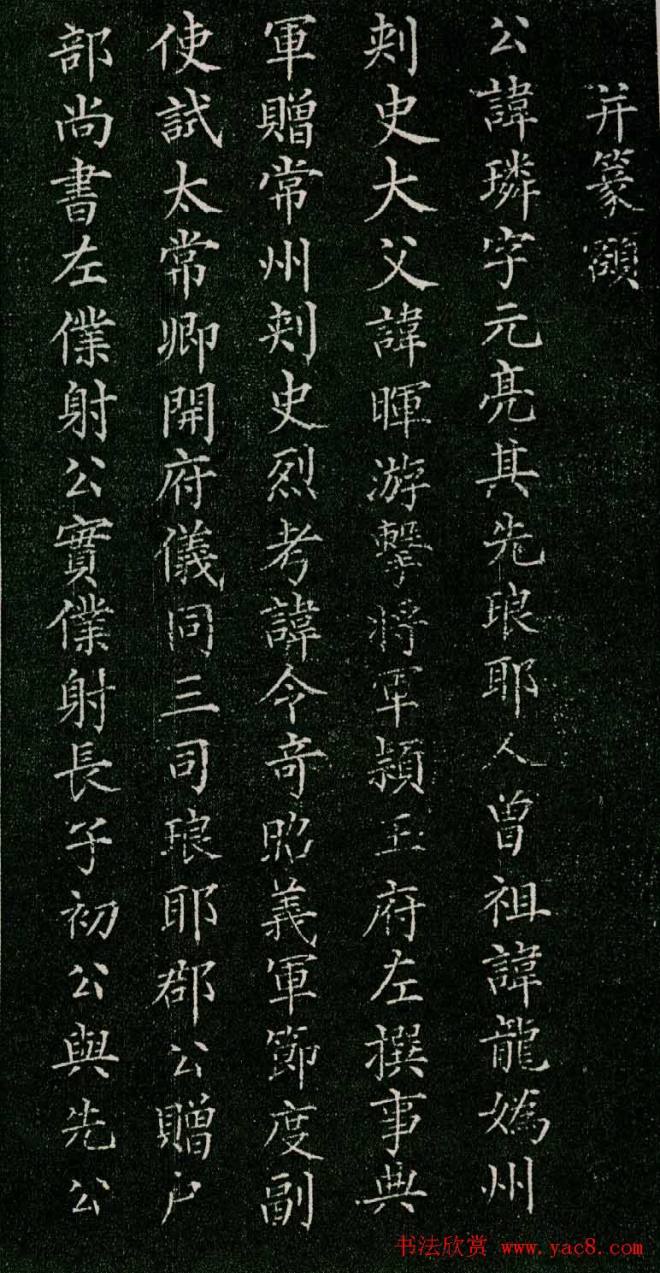 并篆額
公諱璘字元亮其先琅耶人曾祖諱龍媯州
刾史大父諱暉游擊將軍潁王府左撰事典
軍贈常州刾史烈考諱令奇昭義軍節度副
使試太常卿開府儀同三司琅耶郡公贈户
部尚書左僕射公實僕射長子初公與先公
书法欣赏 www.yac8.com